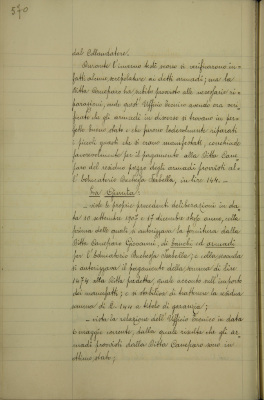 570
dal Collaudatore.
Durante l'inverno testè scorso si verificarono in-
fatti alcune screpolature ai detti armadi; ma la
Ditta Canepero ha subito provvisto alle necessarie ri-
parazioni, onde quest'Ufficio Tecnico avendo ora ve-
duto che gli armadi in discorso si trovano in per-
fetto buono stato e che furono lodevolmente riparati
i piccoli guasti che si erano manifestati, conchiude
favorevolmente per il pagamento alla Ditta Cane-
pero del residuo prezzo degli armadi provvisti al-
l'Educatorio Duchessa Isabella, in lire 144. -
La Giunta:
- viste le proprie precedenti deliberazioni in da-
ta 10 settembre 1907 e 17 dicembre stesso anno, colla
prima delle quali si autorizzava la fornitura dalla
Ditta Canepero Giovanni, di banchi ed armadi
per l'Educatorio Duchessa Isabella; e colla seconda
si autorizzava il pagamento della somma di lire
1474 alla Ditta predetta, quale acconto sull'importo
dei manufatti; e si stabiliva di trattenere la residua
somma di L. 144 a titolo di garanzia;
- vista la relazione dell'Ufficio Tecnico in data
6 maggio corrente, dalla quale risulta che gli ar-
madi provvisti dalla Ditta Canepero sono in
ottimo stato;